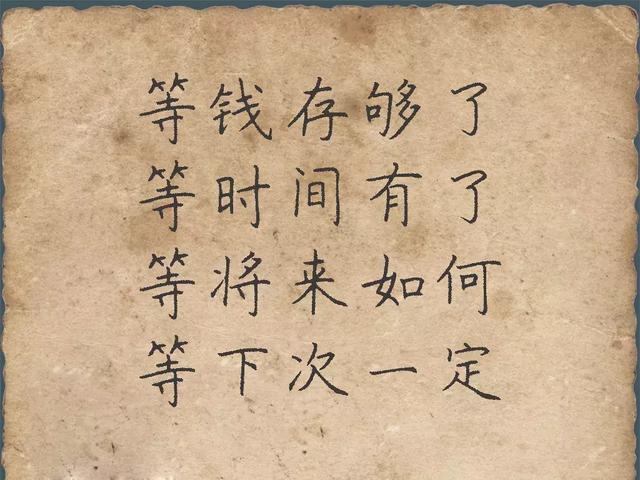 等钱存够了
等时间有了
等将来如何
等下次一定